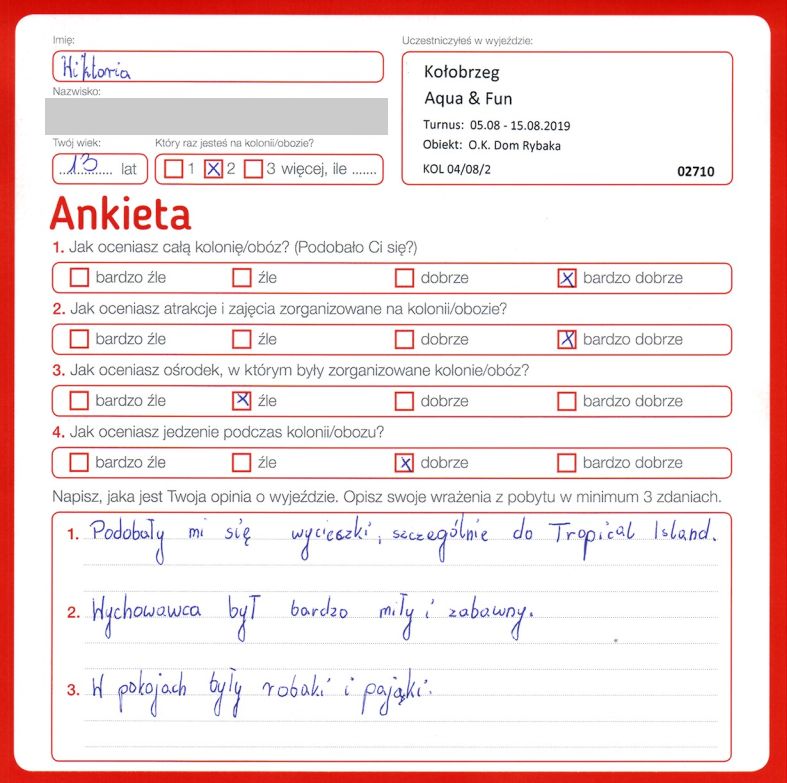 Imię:
Wiktoria
Nazwisko:
Twój wiek:
13 lat
Który raz jesteś na kolonii/obozie?
1 X 2 3 więcej, ile .......
Uczestniczyłeś w wyjeździe:
Kołobrzeg
Aqua & Fun
Turnus: 05.08 - 15.08.2019
Obiekt: O.K. Dom Rybaka
KOL 04/08/2 02710
Ankieta
1. Jak oceniasz całą kolonię/obóz? (Podobało Ci się?)
bardzo źle źle dobrze X bardzo dobrze
2. Jak oceniasz atrakcje i zajęcia zorganizowane na kolonii/obozie?
bardzo źle źle dobrze X bardzo dobrze
3. Jak oceniasz ośrodek, w którym były zorganizowane kolonie/obóz?
bardzo źle X źle dobrze bardzo dobrze
4. Jak oceniasz jedzenie podczas kolonii/obozu?
bardzo źle źle X dobrze bardzo dobrze
Napisz, jaka jest Twoja opinia o wyjeździe. Opisz swoje wrażenia z pobytu w minimum 3 zdaniach.
1. Podobały mi się wycieczki, szczególnie do Tropical Island.
2. Wychowawca był bardzo miły i zabawny.
3. W pokojach były robaki i pająki.